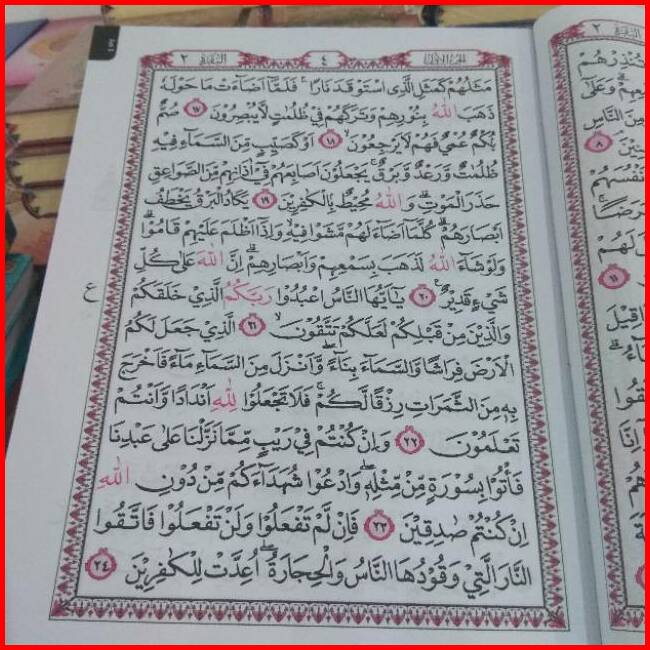 الجزء الاول ٤ البقرة ٢
مَثَلُهُمْ كَمَثَلِ الَّذِى اسْتَوْقَدَ نَارًا ۚ فَلَمَّآ اَضَآءَتْ مَا حَوْلَهٗ
ذَهَبَ اللّٰهُ بِنُوْرِهِمْ وَتَرَكَهُمْ فِيْ ظُلُمٰتٍ لَّا يُبْصِرُوْنَ ١٧ صُمٌّۢ
بُكْمٌ عُمْيٌ فَهُمْ لَا يَرْجِعُوْنَ ۙ ١٨ اَوْ كَصَيِّبٍ مِّنَ السَّمَآءِ فِيْهِ
ظُلُمٰتٌ وَّرَعْدٌ وَّبَرْقٌ ۚ يَجْعَلُوْنَ اَصَابِعَهُمْ فِيْٓ اٰذَانِهِمْ مِّنَ الصَّوَاعِقِ
حَذَرَ الْمَوْتِ ۗ وَاللّٰهُ مُحِيْطٌۢ بِالْكٰفِرِيْنَ ١٩ يَكَادُ الْبَرْقُ يَخْطَفُ
اَبْصَارَهُمْ ۗ كُلَّمَآ اَضَآءَ لَهُمْ مَّشَوْا فِيْهِ ۙ وَاِذَآ اَظْلَمَ عَلَيْهِمْ قَامُوْا ۗ
وَلَوْ شَآءَ اللّٰهُ لَذَهَبَ بِسَمْعِهِمْ وَاَبْصَارِهِمْ ۗ اِنَّ اللّٰهَ عَلٰى كُلِّ
شَيْءٍ قَدِيْرٌ ٢٠ يٰٓاَيُّهَا النَّاسُ اعْبُدُوْا رَبَّكُمُ الَّذِيْ خَلَقَكُمْ
ع
وَالَّذِيْنَ مِنْ قَبْلِكُمْ لَعَلَّكُمْ تَتَّقُوْنَ ۙ ٢١ الَّذِيْ جَعَلَ لَكُمُ
الْاَرْضَ فِرَاشًا وَّالسَّمَآءَ بِنَآءً ۖ وَّاَنْزَلَ مِنَ السَّمَآءِ مَآءً فَاَخْرَجَ
بِهٖ مِنَ الثَّمَرٰتِ رِزْقًا لَّكُمْ ۚ فَلَا تَجْعَلُوْا لِلّٰهِ اَنْدَادًا وَّاَنْتُمْ
تَعْلَمُوْنَ ٢٢ وَاِنْ كُنْتُمْ فِيْ رَيْبٍ مِّمَّا نَزَّلْنَا عَلٰى عَبْدِنَا
فَأْتُوْا بِسُوْرَةٍ مِّنْ مِّثْلِهٖ ۖ وَادْعُوْا شُهَدَآءَكُمْ مِّنْ دُوْنِ اللّٰهِ
اِنْ كُنْتُمْ صٰدِقِيْنَ ٢٣ فَاِنْ لَّمْ تَفْعَلُوْا وَلَنْ تَفْعَلُوْا فَاتَّقُوا
النَّارَ الَّتِيْ وَقُوْدُهَا النَّاسُ وَالْحِجَارَةُ ۖ اُعِدَّتْ لِلْكٰفِرِيْنَ ٢٤